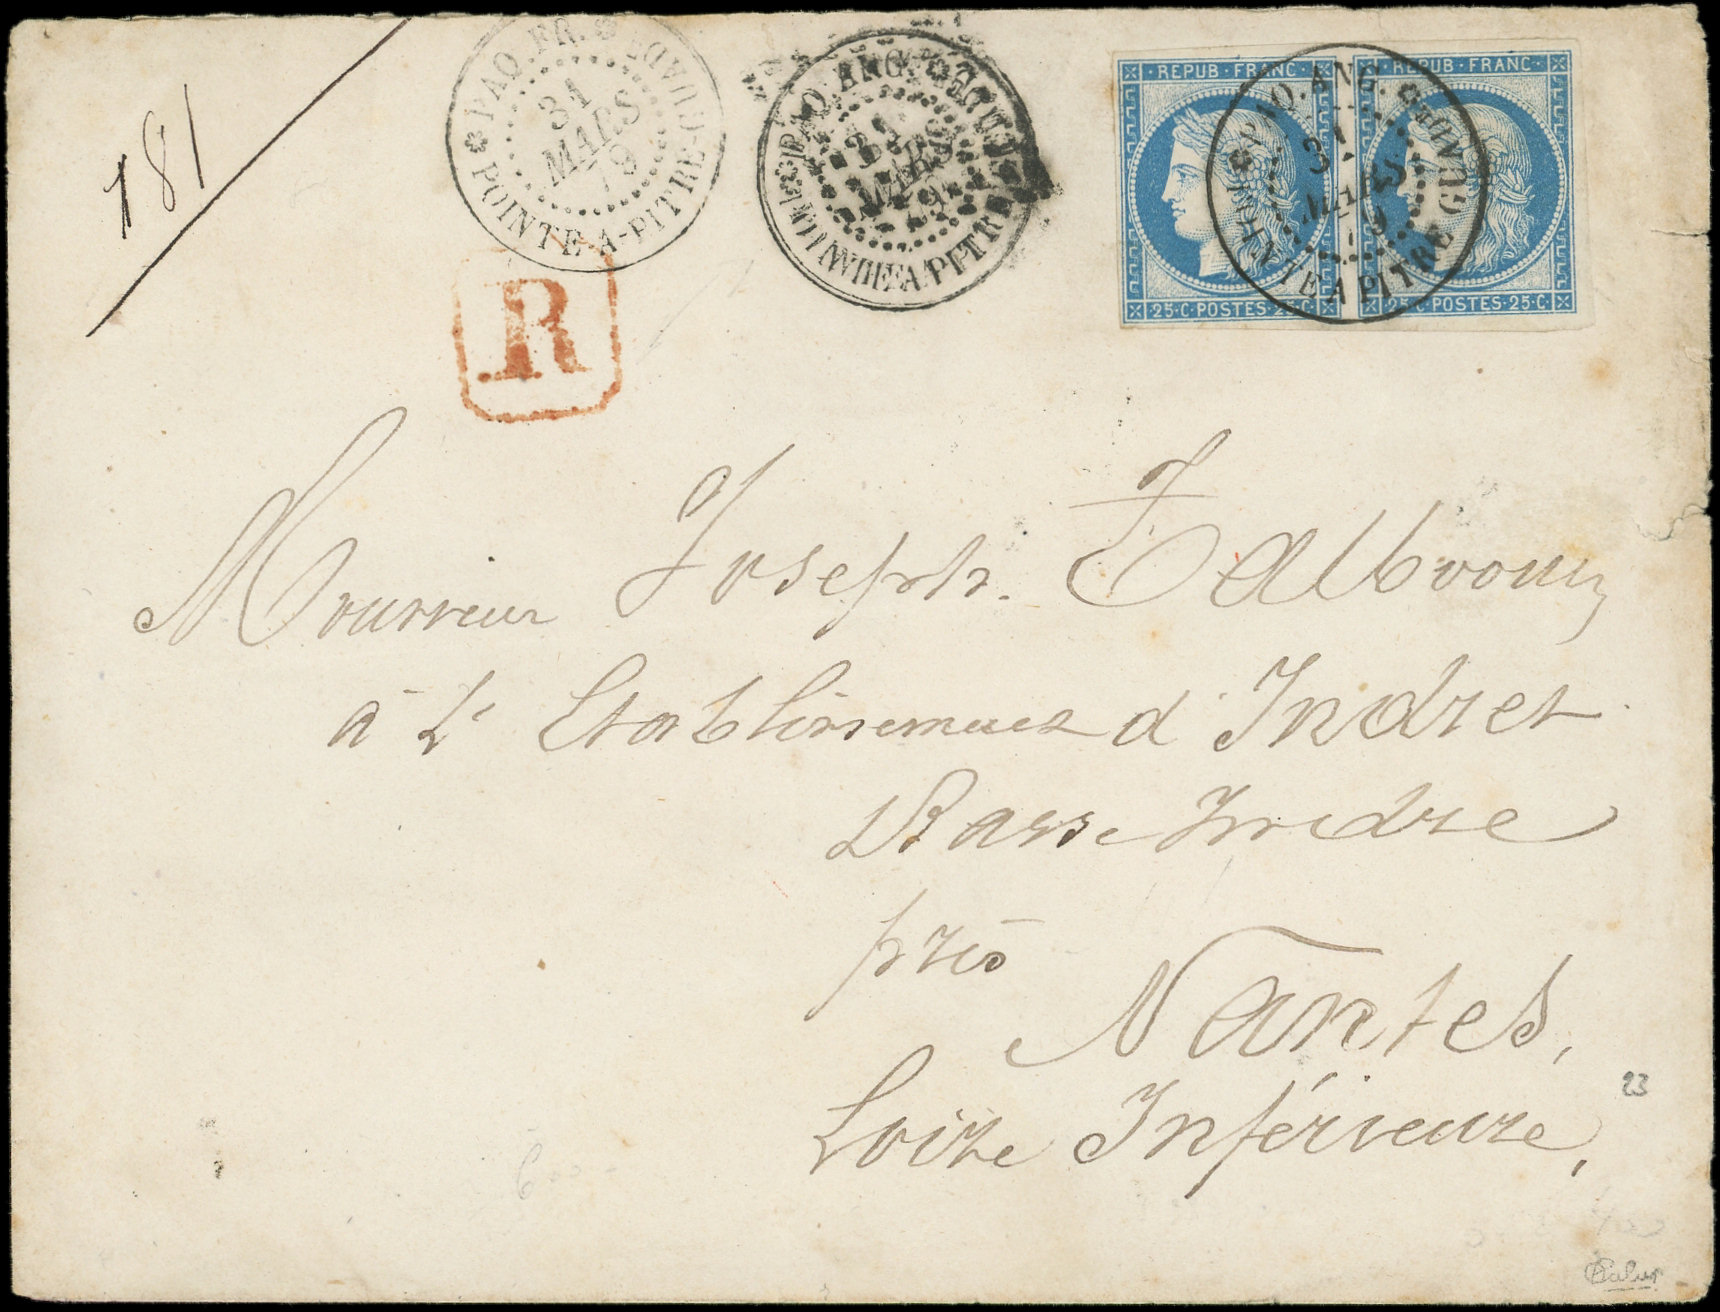 181
PAQ. FR. GUADELOUPE
31
MARS
79
POINTE-A-PITRE
PAQ. ANG.
MARS
PITRE
REPUB·FRANC·
25·C·POSTES·25·C·
REPUB·FRANC·
25·C·POSTES·25·C·
PAQ. ANG. GUADEL
31
MARS
79
POINTE A PITRE
R
Monsieur Joseph
à L' Etablissement d'Indret
Basse Indre
près
Nantes,
Loire Inférieure,
23